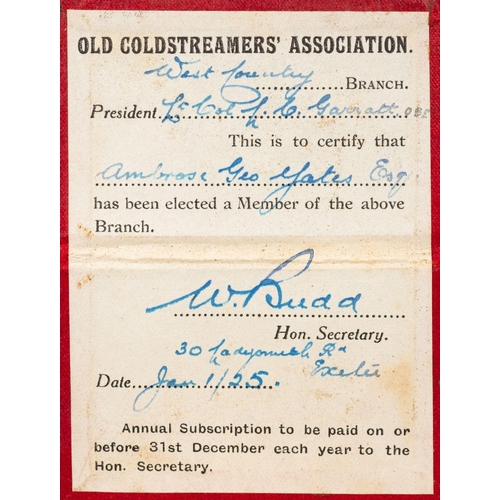 OLD COLDSTREAMERS' ASSOCIATION.
West Country BRANCH.
President Lt Col L C Garratt OBE
This is to certify that
Ambrose Geo Yates Esq
has been elected a Member of the above
Branch.
W. Budd
Hon. Secretary.
30 Rd
Exeter
Date Jan 1/25.
Annual Subscription to be paid on or
before 31st December each year to the
Hon. Secretary.